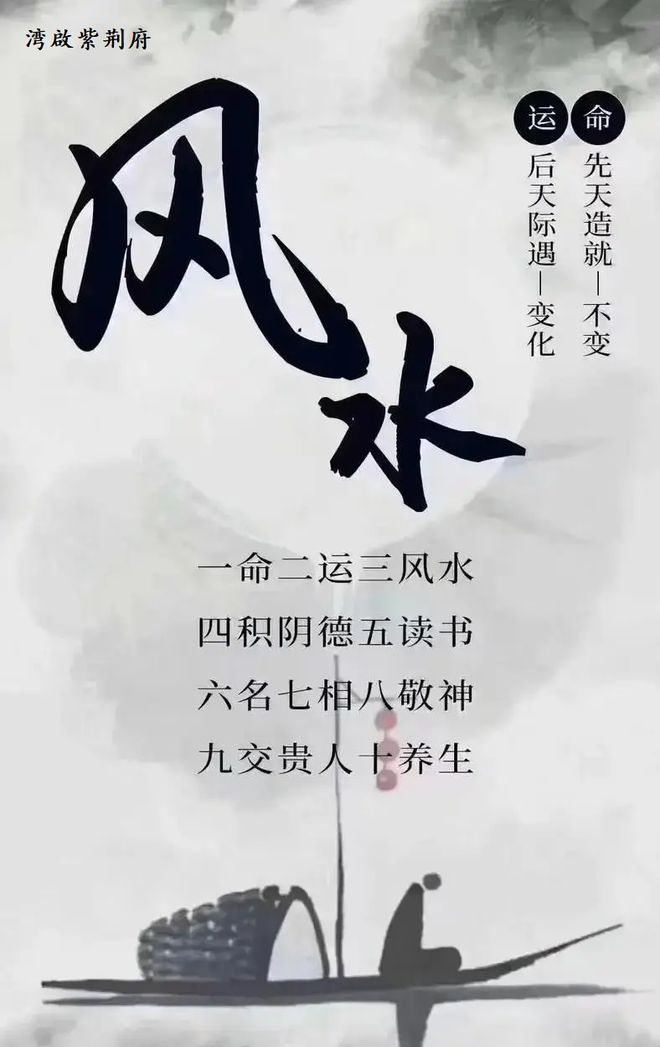 湾啟紫荆府
风水
命 先天造就—不变
运 后天际遇—变化
一命二运三风水
四积阴德五读书
六名七相八敬神
九交贵人十养生